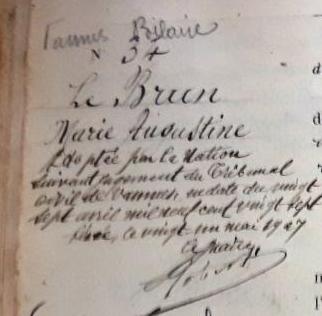 Vannes Bilaire
N° 34
Le Brun
Marie Augustine
Adoptée par la Nation
suivant jugement du Tribunal
civil de Vannes, en date du vingt
sept avril mil neuf cent vingt sept
le vingt un mai 1927
Le maire,
d
d
m